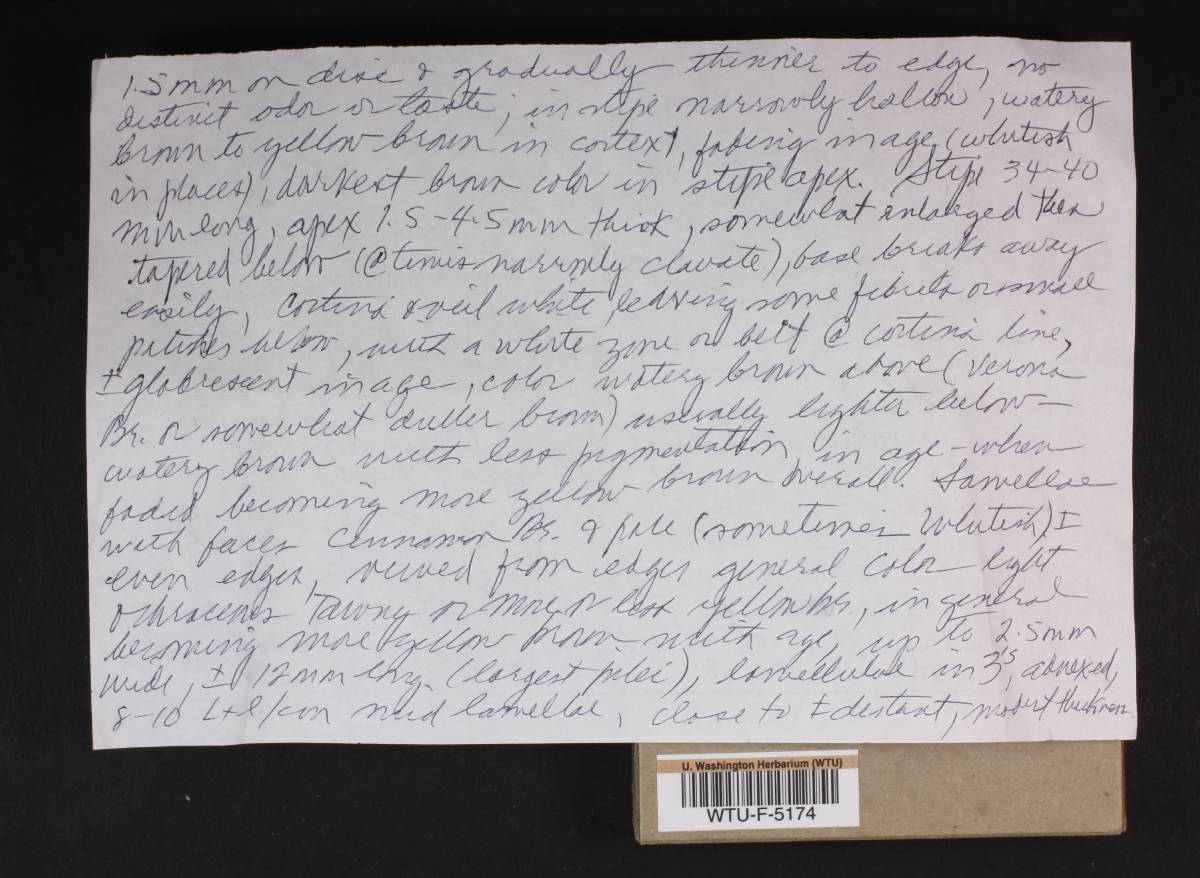 1.5 mm on disc & gradually thinner to edge, no
distinct odor or taste; in stipe narrowly hollow, watery
brown to yellow brown in cortex, fading in age (whitish
in places), darkest brown color in stipe apex. Stipe 34-40
mm long, apex 1.5-4.5 mm thick, somewhat enlarged then
tapered below (@ times narrowly clavate), base breaks away
easily, Cortina & veil white, leaving some fibrils or small
patches below, with a white zone or belt @ cortina line,
± glabrescent in age, color watery brown above (Verona
Br. or somewhat duller brown) usually lighter below-
watery brown with less pigmentation, in age - when
faded becoming more yellow brown overall. Lamellae
with faces Cinnamon Br. & pale (sometimes whitish) ±
even edges, viewed from edges general color light
ochraceous Tawny or more or less yellow br., in general
becoming more yellow brown with age, up to 2.5 mm
wide, ± 12 mm long (largest pilei), lamellulae in 3's, adnexed,
8-10 L+l/cm mid lamellae, close to ± distant, modest thickness.
U. Washington Herbarium (WTU)
WTU-F-5174